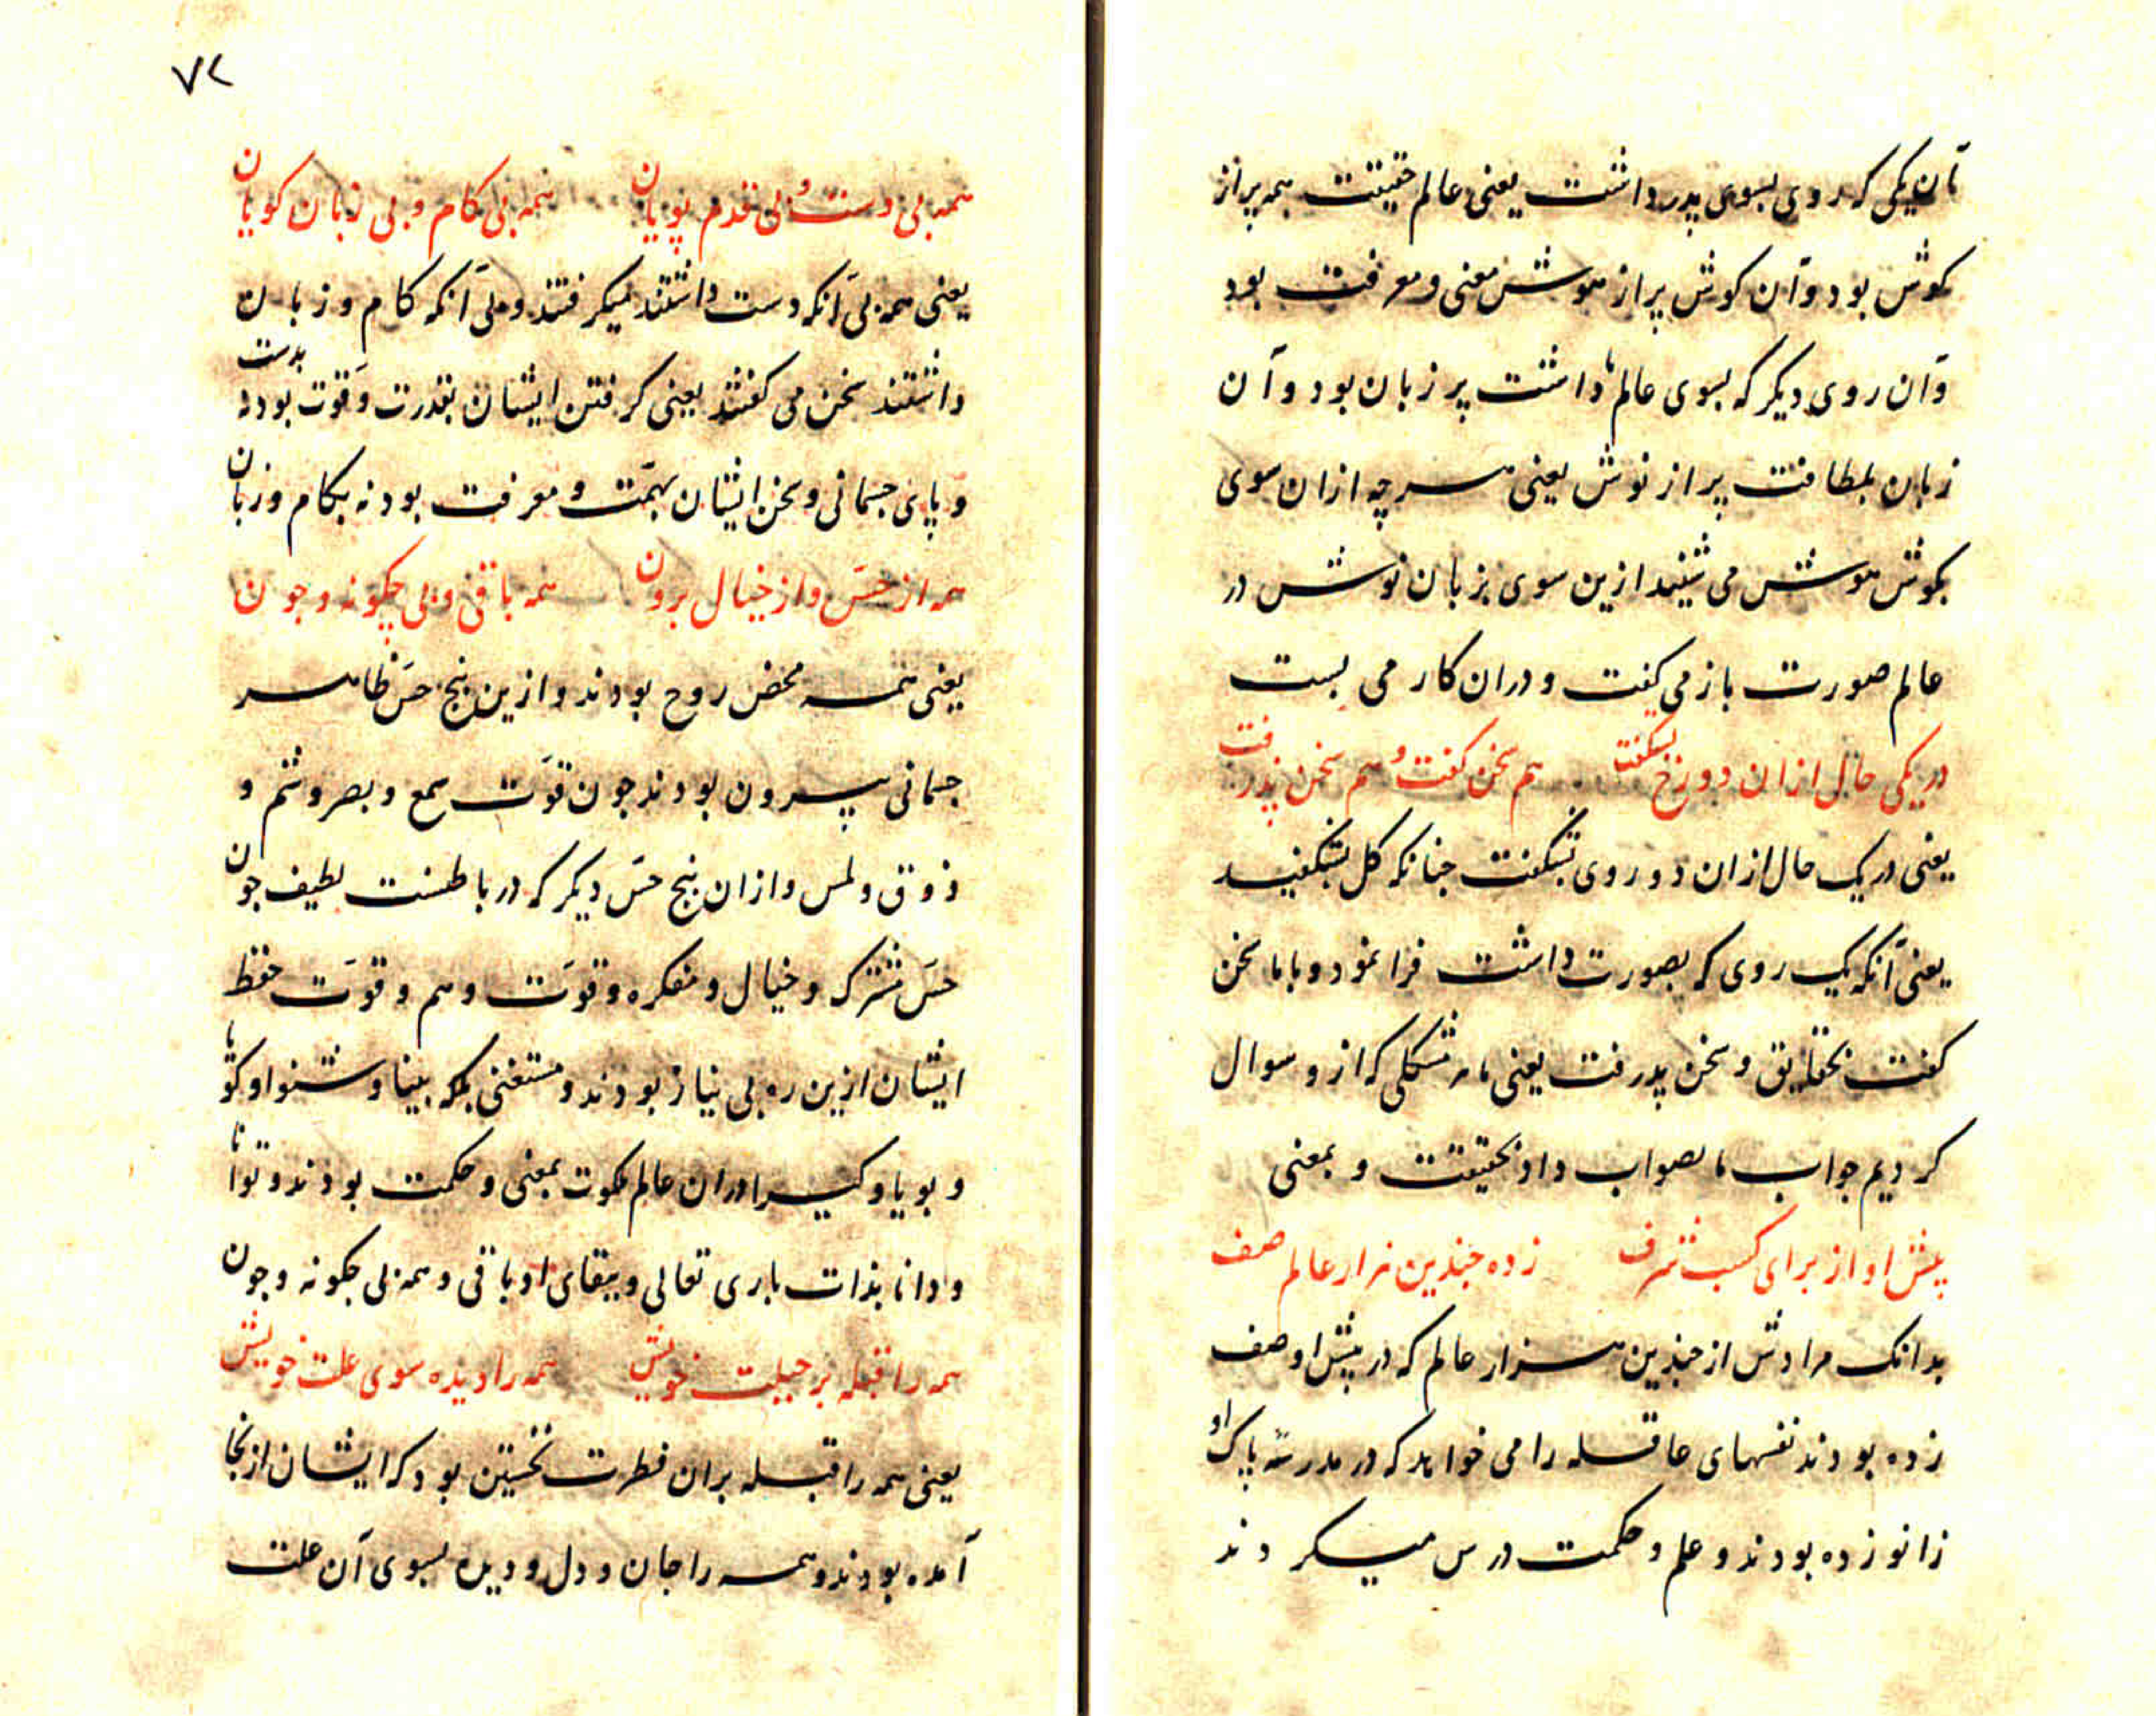 آن یکی که روی بسوی پدر داشت یعنی عالم حقیقت همه پر از
کوش بود و آن کوش پر از هوش معنی و معرفت بود
و آن روی دیکر که بسوی عالم ما داشت پر زبان بود و آن
زبان بلطافت پر از نوش یعنی هر چه ازان سوی
بکوش هوش می شنید ازین سوی بزبان نوش در
عالم صورت باز می کفت و دران کار می بست
در یکی حال ازان دو رخ بشکفت هم سخن کفت و هم سخن پذرفت
یعنی در یک حال ازان دو روی بشکفت جنانکه کل بشکفید
یعنی آنکه یک روی که بصورت داشت فرا نمود و با ما سخن
کفت بحقایق و سخن پدرفت یعنی ما هر مشکلی که ازو سوال
کردیم جواب ما بصواب داد بحقیقت و بمعنی
پیش او از برای کسب شرف زده جندین هزار عالم صف
بدانک مرادش از جندین هزار عالم که در پیش او صف
زده بودند نفسهای عاقله را می خواهد که در مدرسه پاک او
زانو زده بودند و علم و حکمت درس میکردند
٧٢
همه بی دست و بی قدم پویان همه بی کام و بی زبان کویان
یعنی همه بی آنکه دست داشتند میکرفتند و بی آنکه کام و زبان
داشتند سخن می کفتند یعنی کرفتن ایشان بقدرت و قوت بود نه بدست
و پای جسمانی و سخن ایشان بهمت و معرفت بود نه بکام و زبان
همه از حس و از خیال برون همه باقی و بی چکونه و چون
یعنی همه محض روح بودند و ازین پنج حس ظاهر
جسمانی بیرون بودند جون قوت سمع و بصر و شم و
ذوق و لمس و ازان پنج حس دیکر که در باطنست لطیف جون
حس مشترک و خیال و مفکره و قوت وهم و قوت حفظ
ایشان ازین ره بی نیاز بودند و مستغنی بلکه بینا و شنوا و کویا
و بویا و کیرا دران عالم ملکوت بمعنی و حکمت بودند و توانا
و دانا بذات باری تعالی و ببقای او باقی و همه بی جکونه و جون
همه را قبله بر جبلت خویش همه را دیده سوی علت خویش
یعنی همه را قبله بران فطرت نخستین بود که ایشان ازنجا
آمده بودند و همه را جان و دل و دیده بسوی آن علت